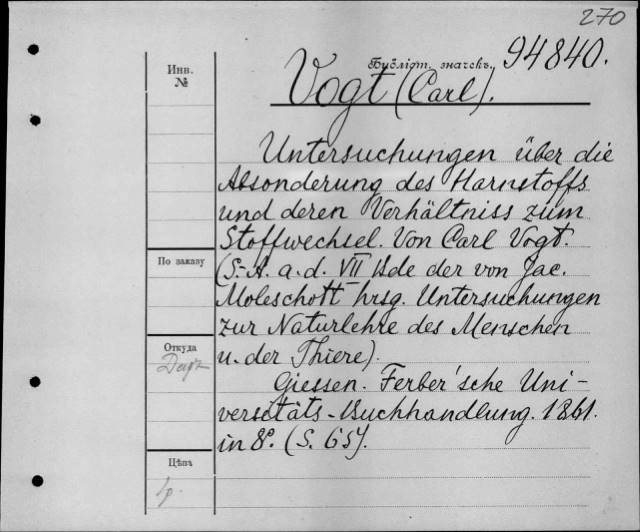 270
Библіот. значекъ. 94840.
Инв. №
Vogt (Carl).
Untersuchungen über die
Absonderung des Harnstoffs
und deren Verhältniss zum
Stoffwechsel. Von Carl Vogt.
(S.-A. a. d. VII Bde der von Jac.
По заказу
Moleschott hrsg. Untersuchungen
zur Naturlehre des Menschen
Откуда
u. der Thiere).
Giessen. Ferber'sche Uni-
versitäts-Buchhandlung. 1861.
in 8º. (S. 65).
Цѣна